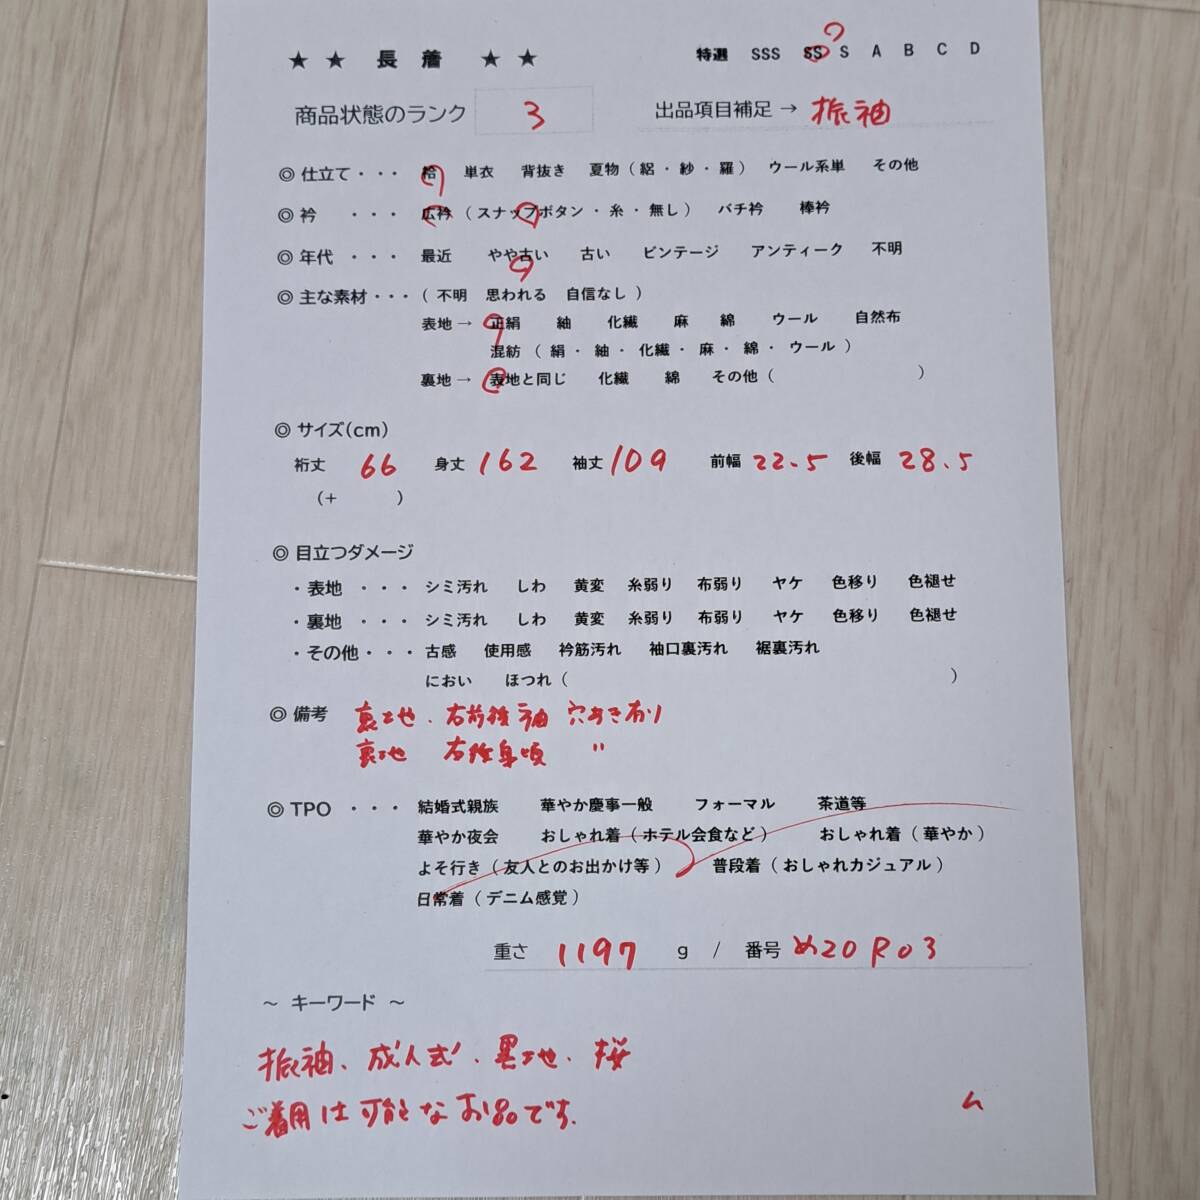 ★ ★ 長 着 ★ ★ 特選 SSS SS S A B C D
商品状態のランク 3 出品項目補足 → 振袖
◎ 仕立て ・・・ 袷 単衣 背抜き 夏物（絽・紗・羅） ウール系単 その他
◎ 衿 ・・・ 広衿（スナップボタン・糸・無し） バチ衿 棒衿
◎ 年代 ・・・ 最近 やや古い 古い ビンテージ アンティーク 不明
◎ 主な素材・・・（ 不明 思われる 自信なし ）
表地 → 正絹 紬 化繊 麻 綿 ウール 自然布
混紡（ 絹・紬・化繊・麻・綿・ウール ）
裏地 → 表地と同じ 化繊 綿 その他（ ）
◎ サイズ(cm)
裄丈 66 身丈 162 袖丈 109 前幅 22.5 後幅 28.5
（+ ）
◎ 目立つダメージ
・表地 ・・・ シミ汚れ しわ 黄変 糸弱り 布弱り ヤケ 色移り 色褪せ
・裏地 ・・・ シミ汚れ しわ 黄変 糸弱り 布弱り ヤケ 色移り 色褪せ
・その他・・・ 古感 使用感 衿筋汚れ 袖口裏汚れ 裾裏汚れ
におい ほつれ（ ）
◎ 備考 裏地、右前後袖 穴あき有り
裏地 右後身頃 〃
◎ TPO ・・・ 結婚式親族 華やか慶事一般 フォーマル 茶道等
華やか夜会 おしゃれ着（ホテル会食など） おしゃれ着（華やか）
よそ行き（友人とのお出かけ等） 普段着（おしゃれカジュアル）
日常着（デニム感覚）
重さ 1197 g / 番号 め20R03
～ キーワード ～
振袖、成人式、黒地、桜
ご着用は可能なお品です。
ム